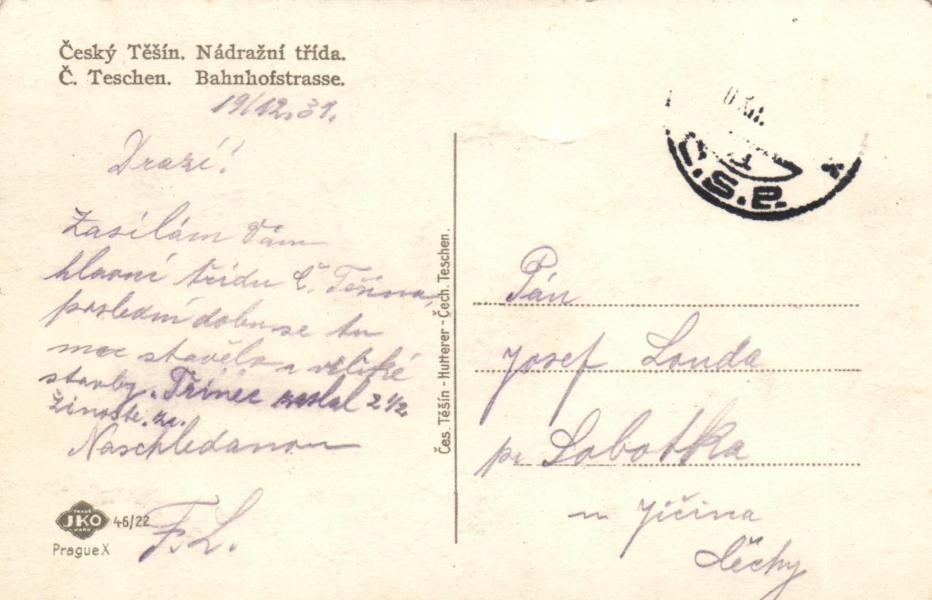 Český Těšín. Nádražní třída.
Č. Teschen. Bahnhofstrasse.
19/12.31.
Drazí!
Zasílám Vám
hlavní třídu Č. Těšína
poslední dobu se tu
moc stavělo a veliké
stavby. Třinec 2 1/2
Naschledanou
F.L.
JKO 46/22
Prague X
Čes. Těšín - Hutterer - Čech. Teschen.
Č.S.P.
Pán
Josef Louda
pr Sobotka
u Jičína
Čechy